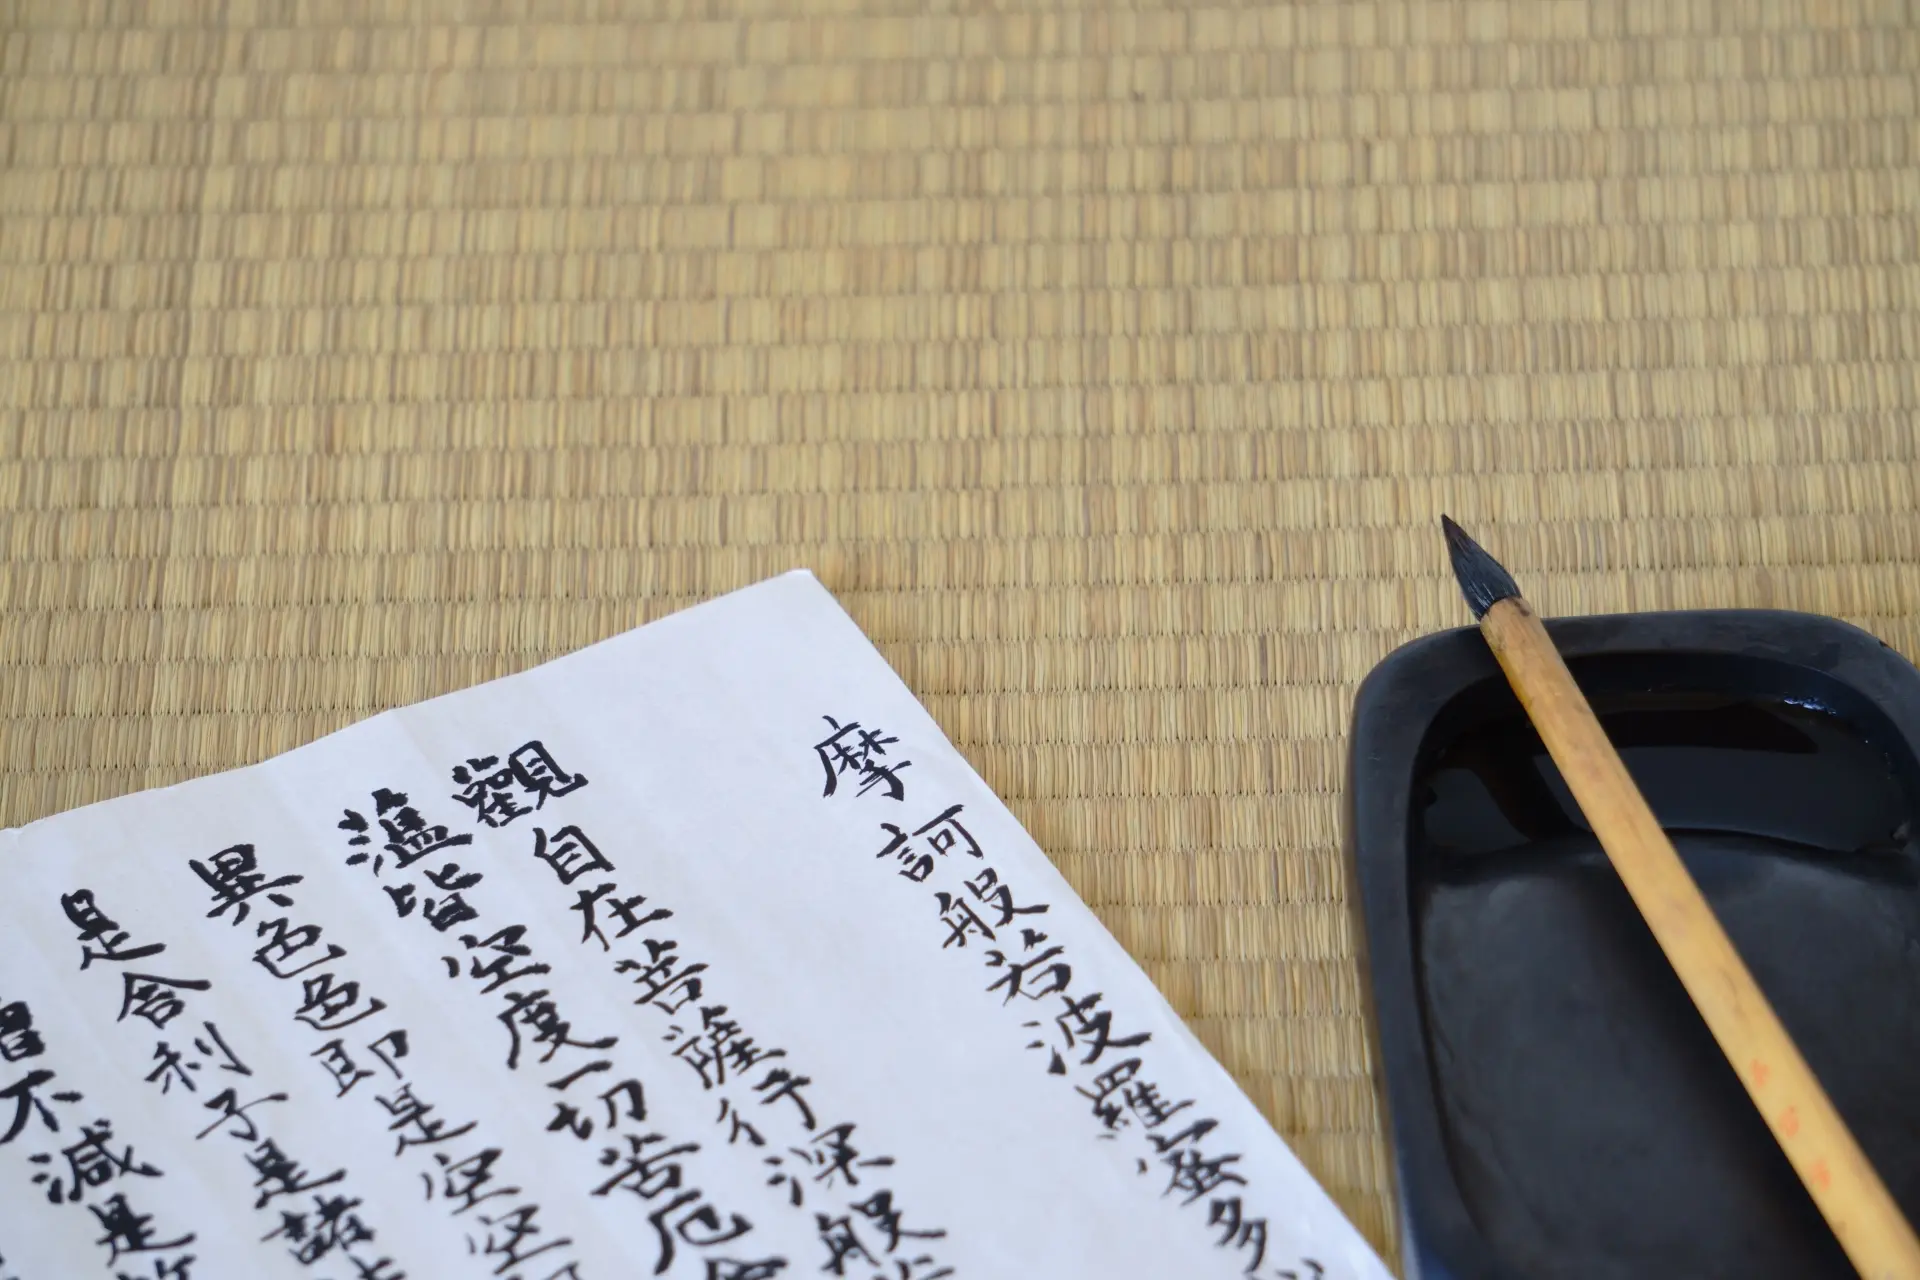 摩訶般若波羅蜜多
觀自在菩薩行深般若
蘊皆空度一切苦厄舍
異色色即是空空
是舍利子是諸法
增不減是故